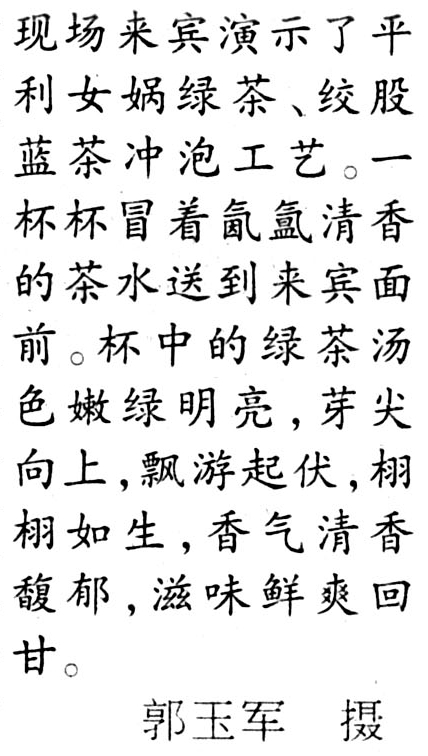 现场来宾演示了平
利女娲绿茶、绞股
蓝茶冲泡工艺。一
杯杯冒着氤氲清香
的茶水送到来宾面
前。杯中的绿茶汤
色嫩绿明亮,芽尖
向上,飘游起伏,栩
栩如生,香气清香
馥郁,滋味鲜爽回
甘。
郭玉军 摄